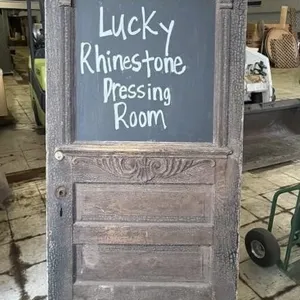 Lucky
Rhinestone
Dressing
Room